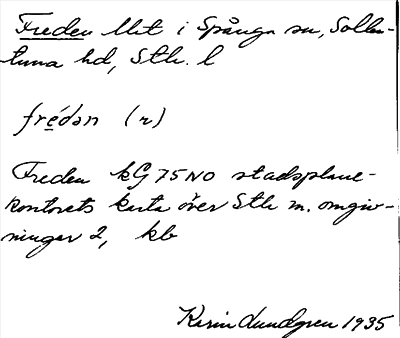 Freden llit i Spånga sn, Sollen-
tuna hd, Sthr. l
frédən (r)
Freden kG 75 NO stadsplane-
kontorets karta över Sthr m. omgiv-
ningar 2, kb
Karin Lundgren 1935